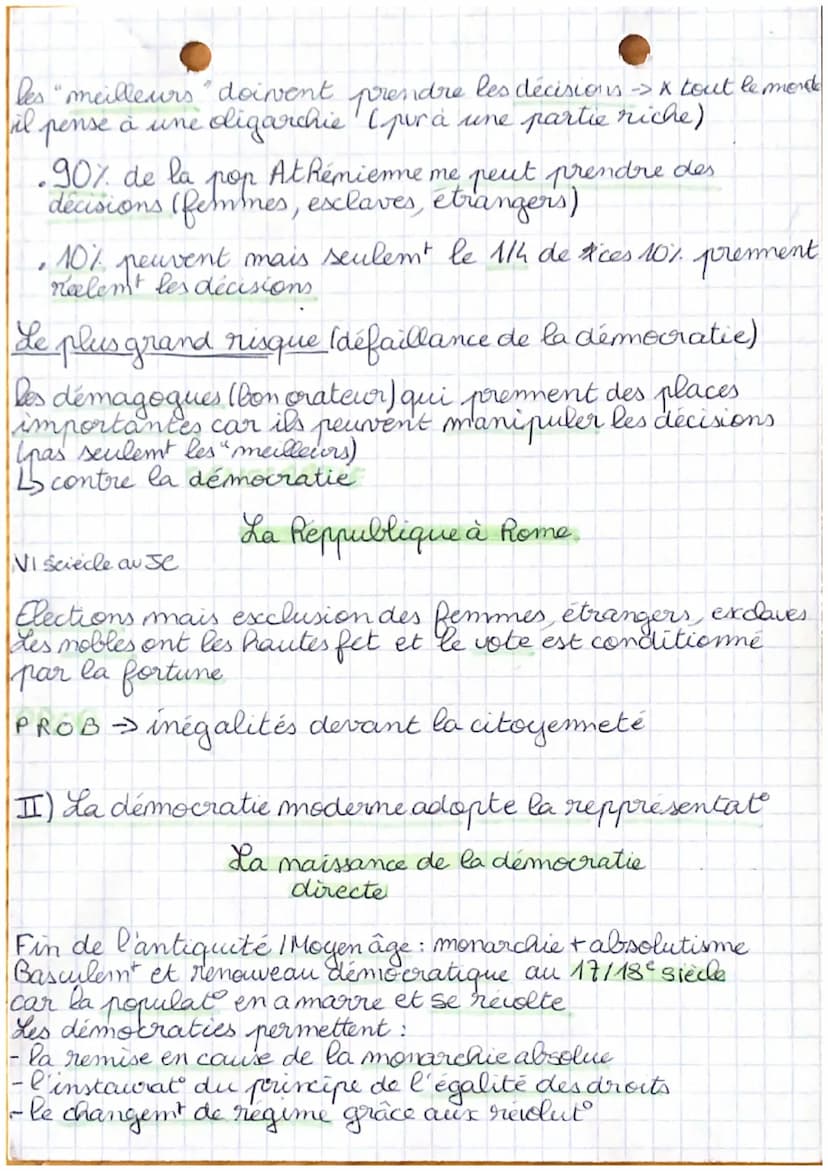 les "meilleurs" doivent prendre les décisions -> x tout le monde
il pense à une oligarchie (pvr à une partie riche)
. 90% de la pop Athénienne ne peut prendre des
décisions (femmes, esclaves, étrangers)
. 10% peuvent mais seulemt le 1/4 de ces 10% prennent
réelemt les décisions
Le plus grand risque (défaillance de la démocratie)
Les démagogues (bon orateur) qui prennent des places
importantes car ils peuvent manipuler les décisions
(pas seulemt les "meilleurs)
↳ contre la démocratie
La Reppublique à Rome
VI sciècle av JC
Elections mais exclusion des femmes, étrangers, esclaves
Les nobles ont les hautes fct et le vote est conditionné
par la fortune
PROB -> inégalités devant la citoyenneté
II) La démocratie moderne adopte la repprésentat°
La naissance de la démocratie
directe
Fin de l'antiquité / Moyen âge : monarchie + absolutisme
Basculemt et renouveau démocratique au 17/18e siècle
car la populat° en a marre et se révolte
Les démocraties permettent :
- la remise en cause de la monarchie absolue
- l'instaurat° du principe de l'égalité des droits
- le changemt de régime grâce aux révolut°